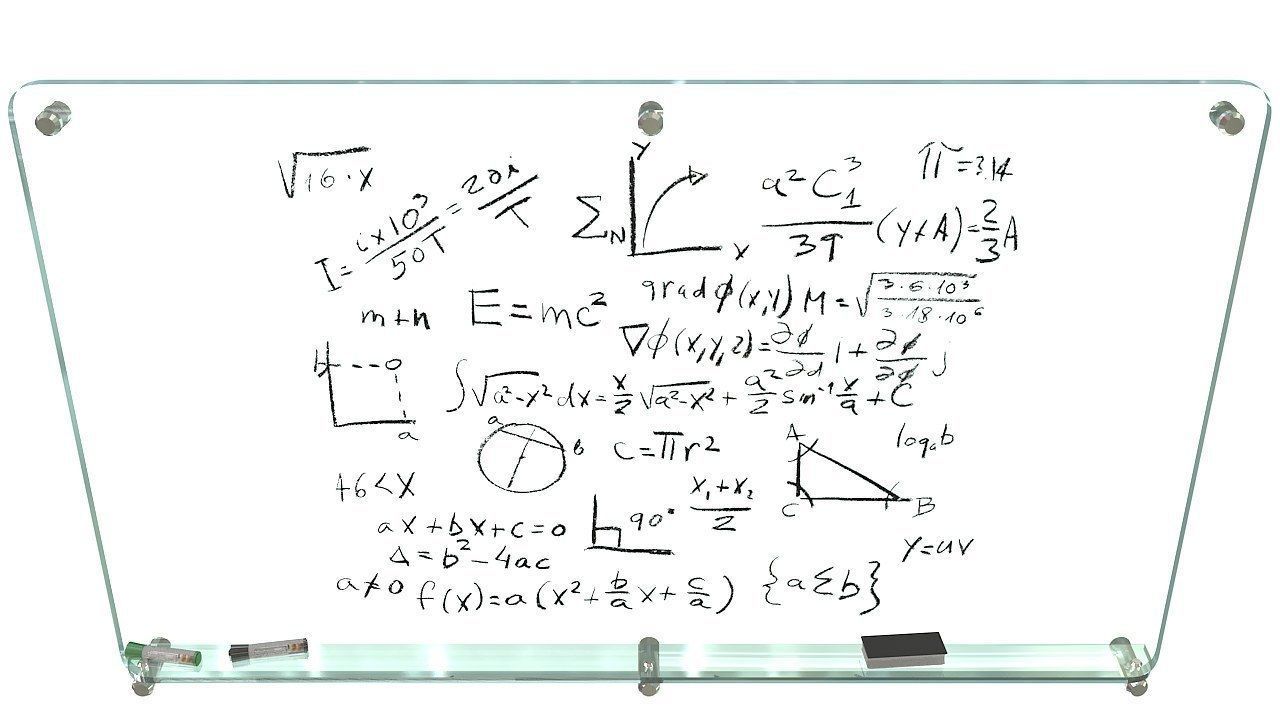 √16·x
I = i×10³/50T = 20i/T
Σ N
Y
X
a²C₁³/39 (y+A) = 2/3 A
π = 3.14
m+n
E = mc²
grad ϕ(x,y) M = √(3·6·10³/3·18·10⁶)
∇ϕ(x,y,z) = ∂ϕ/∂d i + ∂ϕ/∂ϕ j
b
a
∫√a²-x² dx = x/2 √a²-x² + a²/2 sin⁻¹ x/a + C
a
B
c = πr²
A
C
B
logₐb
+6<X
ax + bx + c = 0
Δ = b² - 4ac
a ≠ 0 f(x) = a(x² + b/a x + c/a)
90°
x₁+x₂/2
{a Σ b}
y = uv